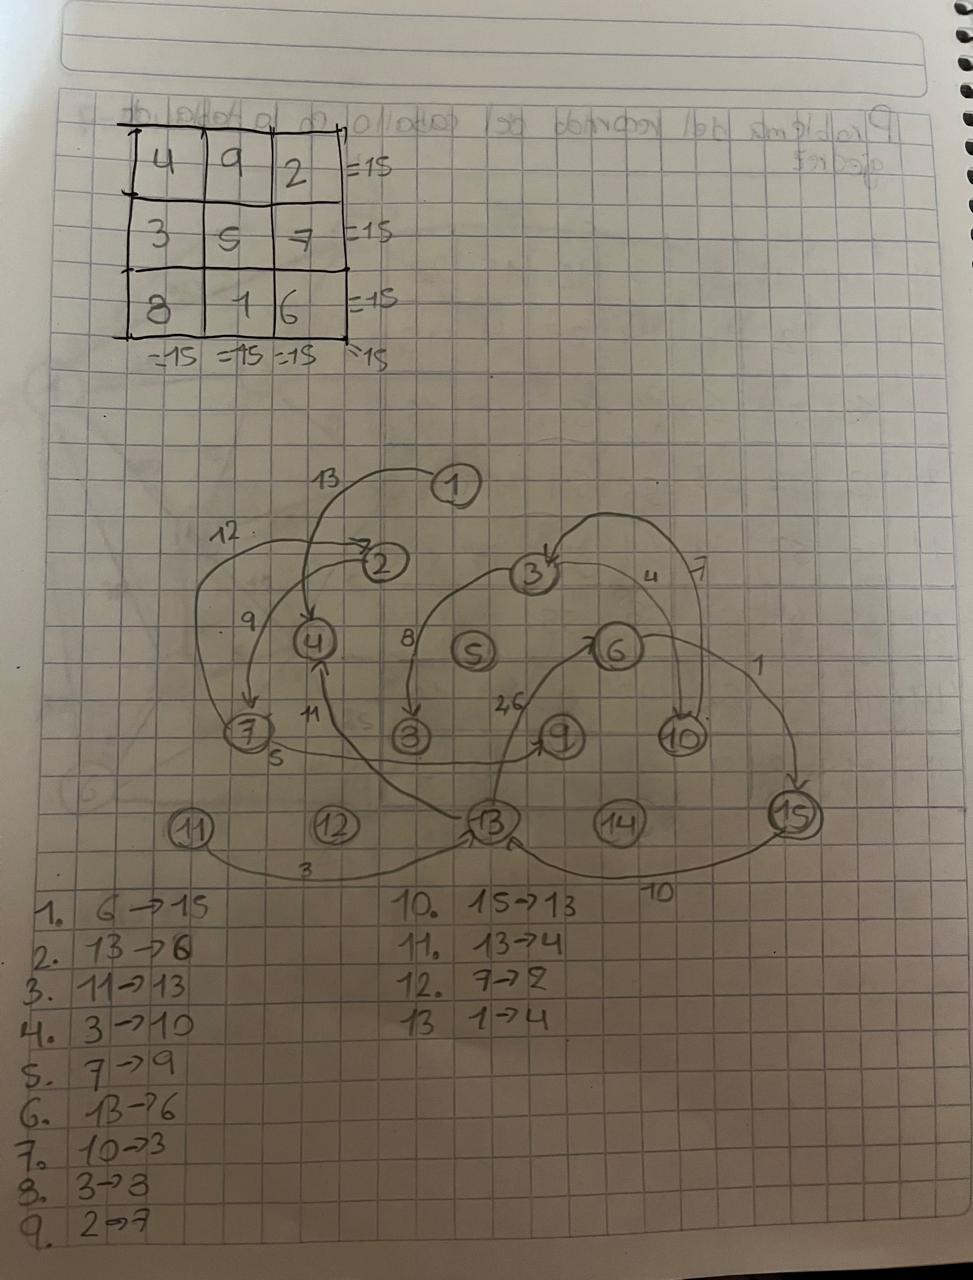 4 9 2 =15
3 5 7 =15
8 1 6 =15
=15 =15 =15 =15
13 1
12
2 3 4 7
9 4 8 5 6 1
11 2,6
7 8 9 10
5
11 12 13 14 15
3 10
1. 6→15
2. 13→6
3. 11→13
4. 3→10
5. 7→9
6. 13→6
7. 10→3
8. 3→8
9. 2→7
10. 15→13
11. 13→4
12. 7→2
13 1→4